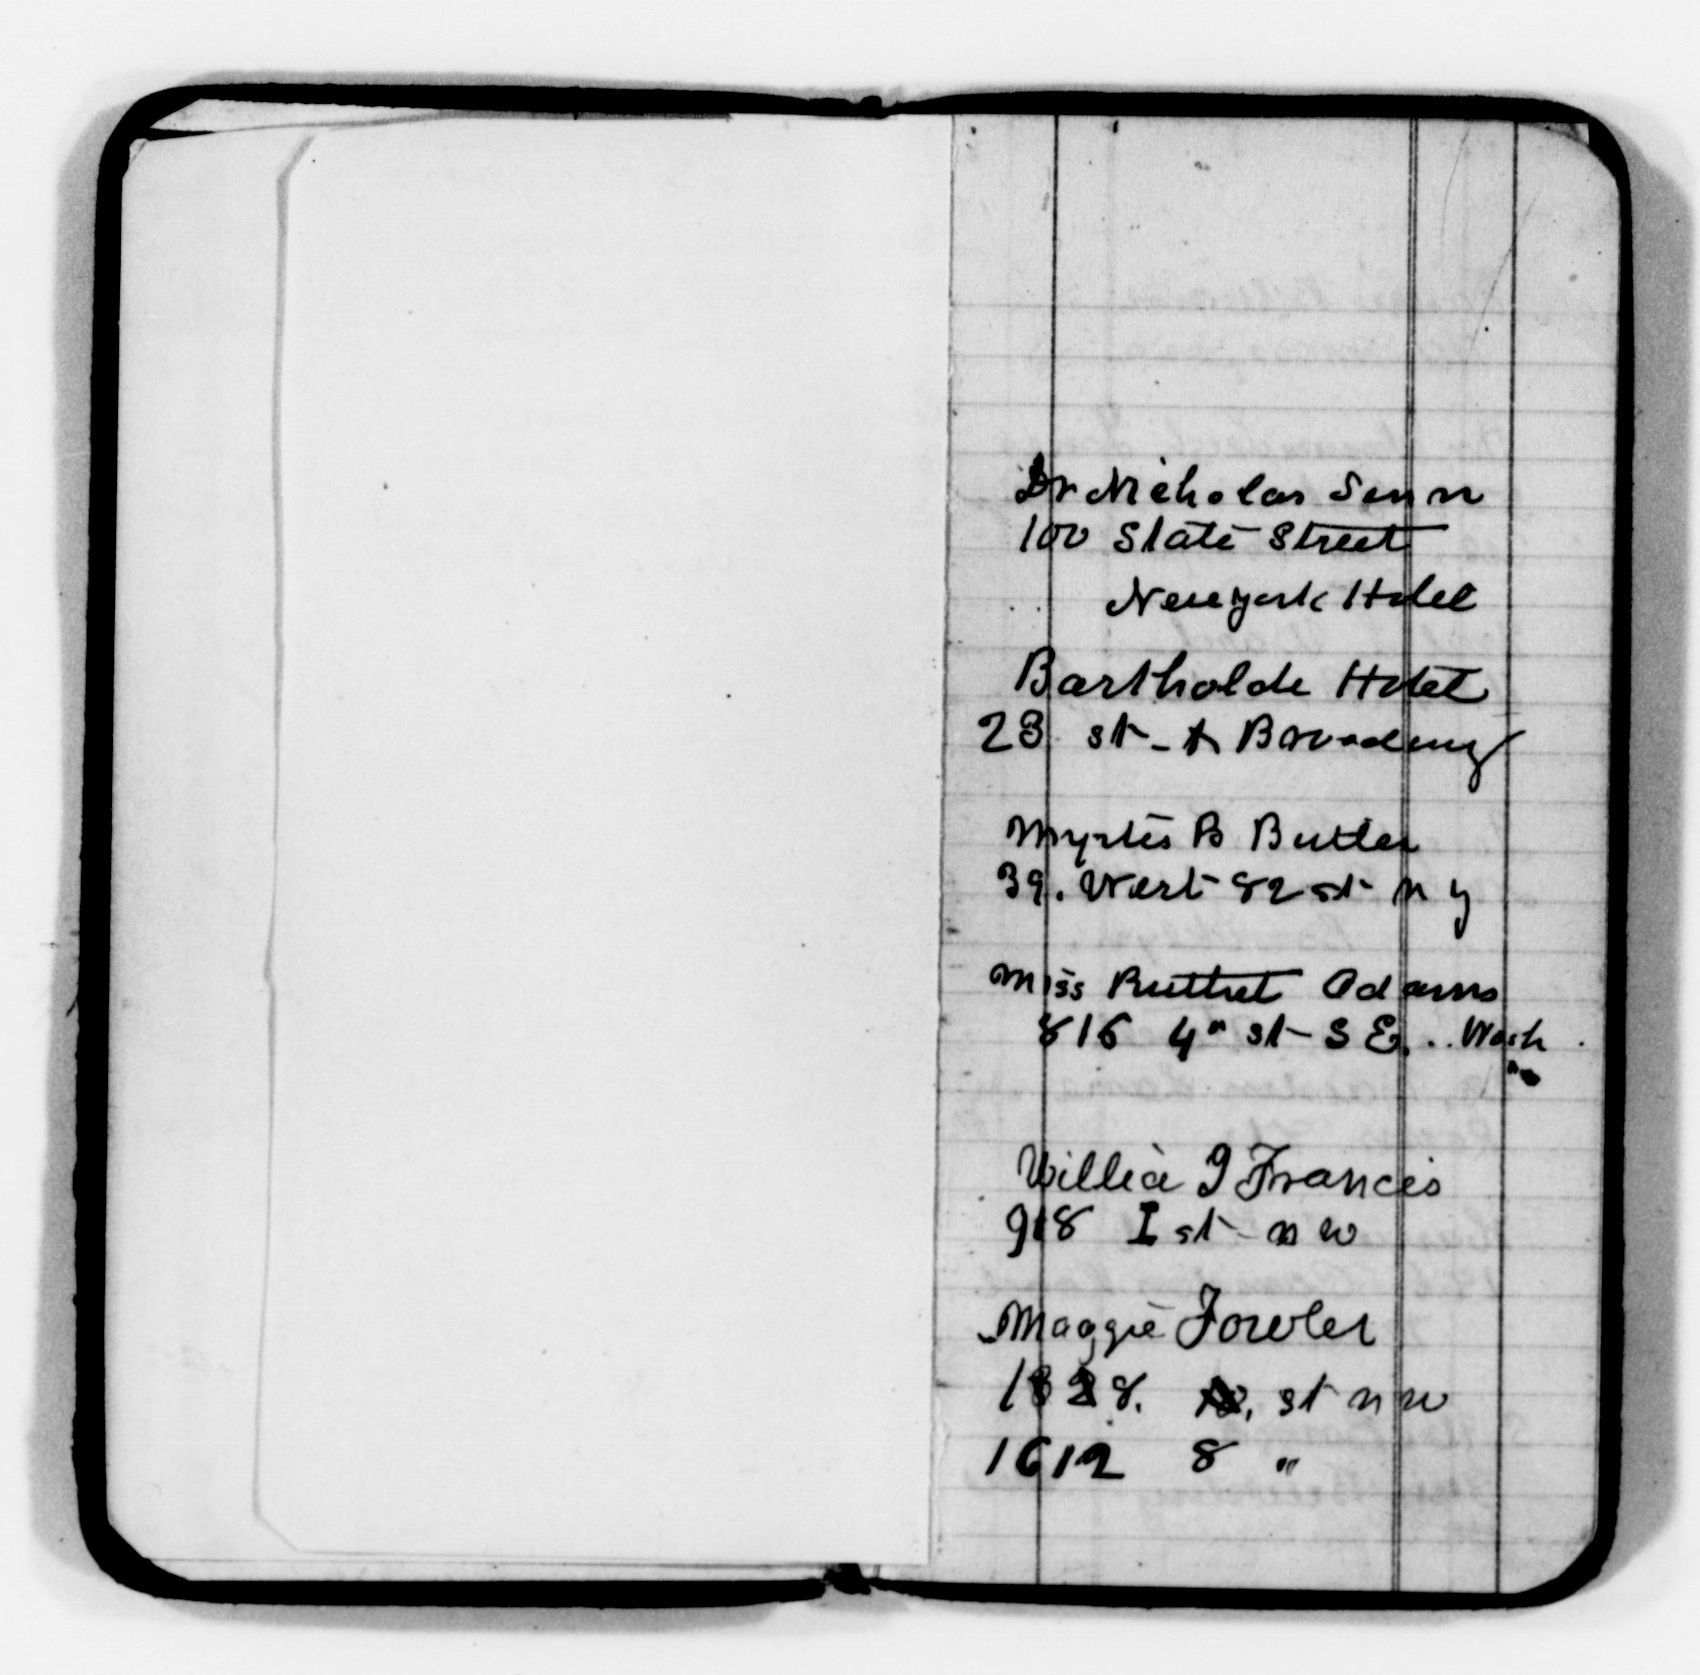 Dr Nicholas Senn
100 State Street
New york Hotel
Bartholde Hotel
23 st - & Broadway
Myrtis B Butler
39. West 82 st n y
Miss Adams
816 4" st - S E. .. Wash
Willie I Francis
918 I st - n w
Maggie Fowler
1828. st n w
1612 8 "